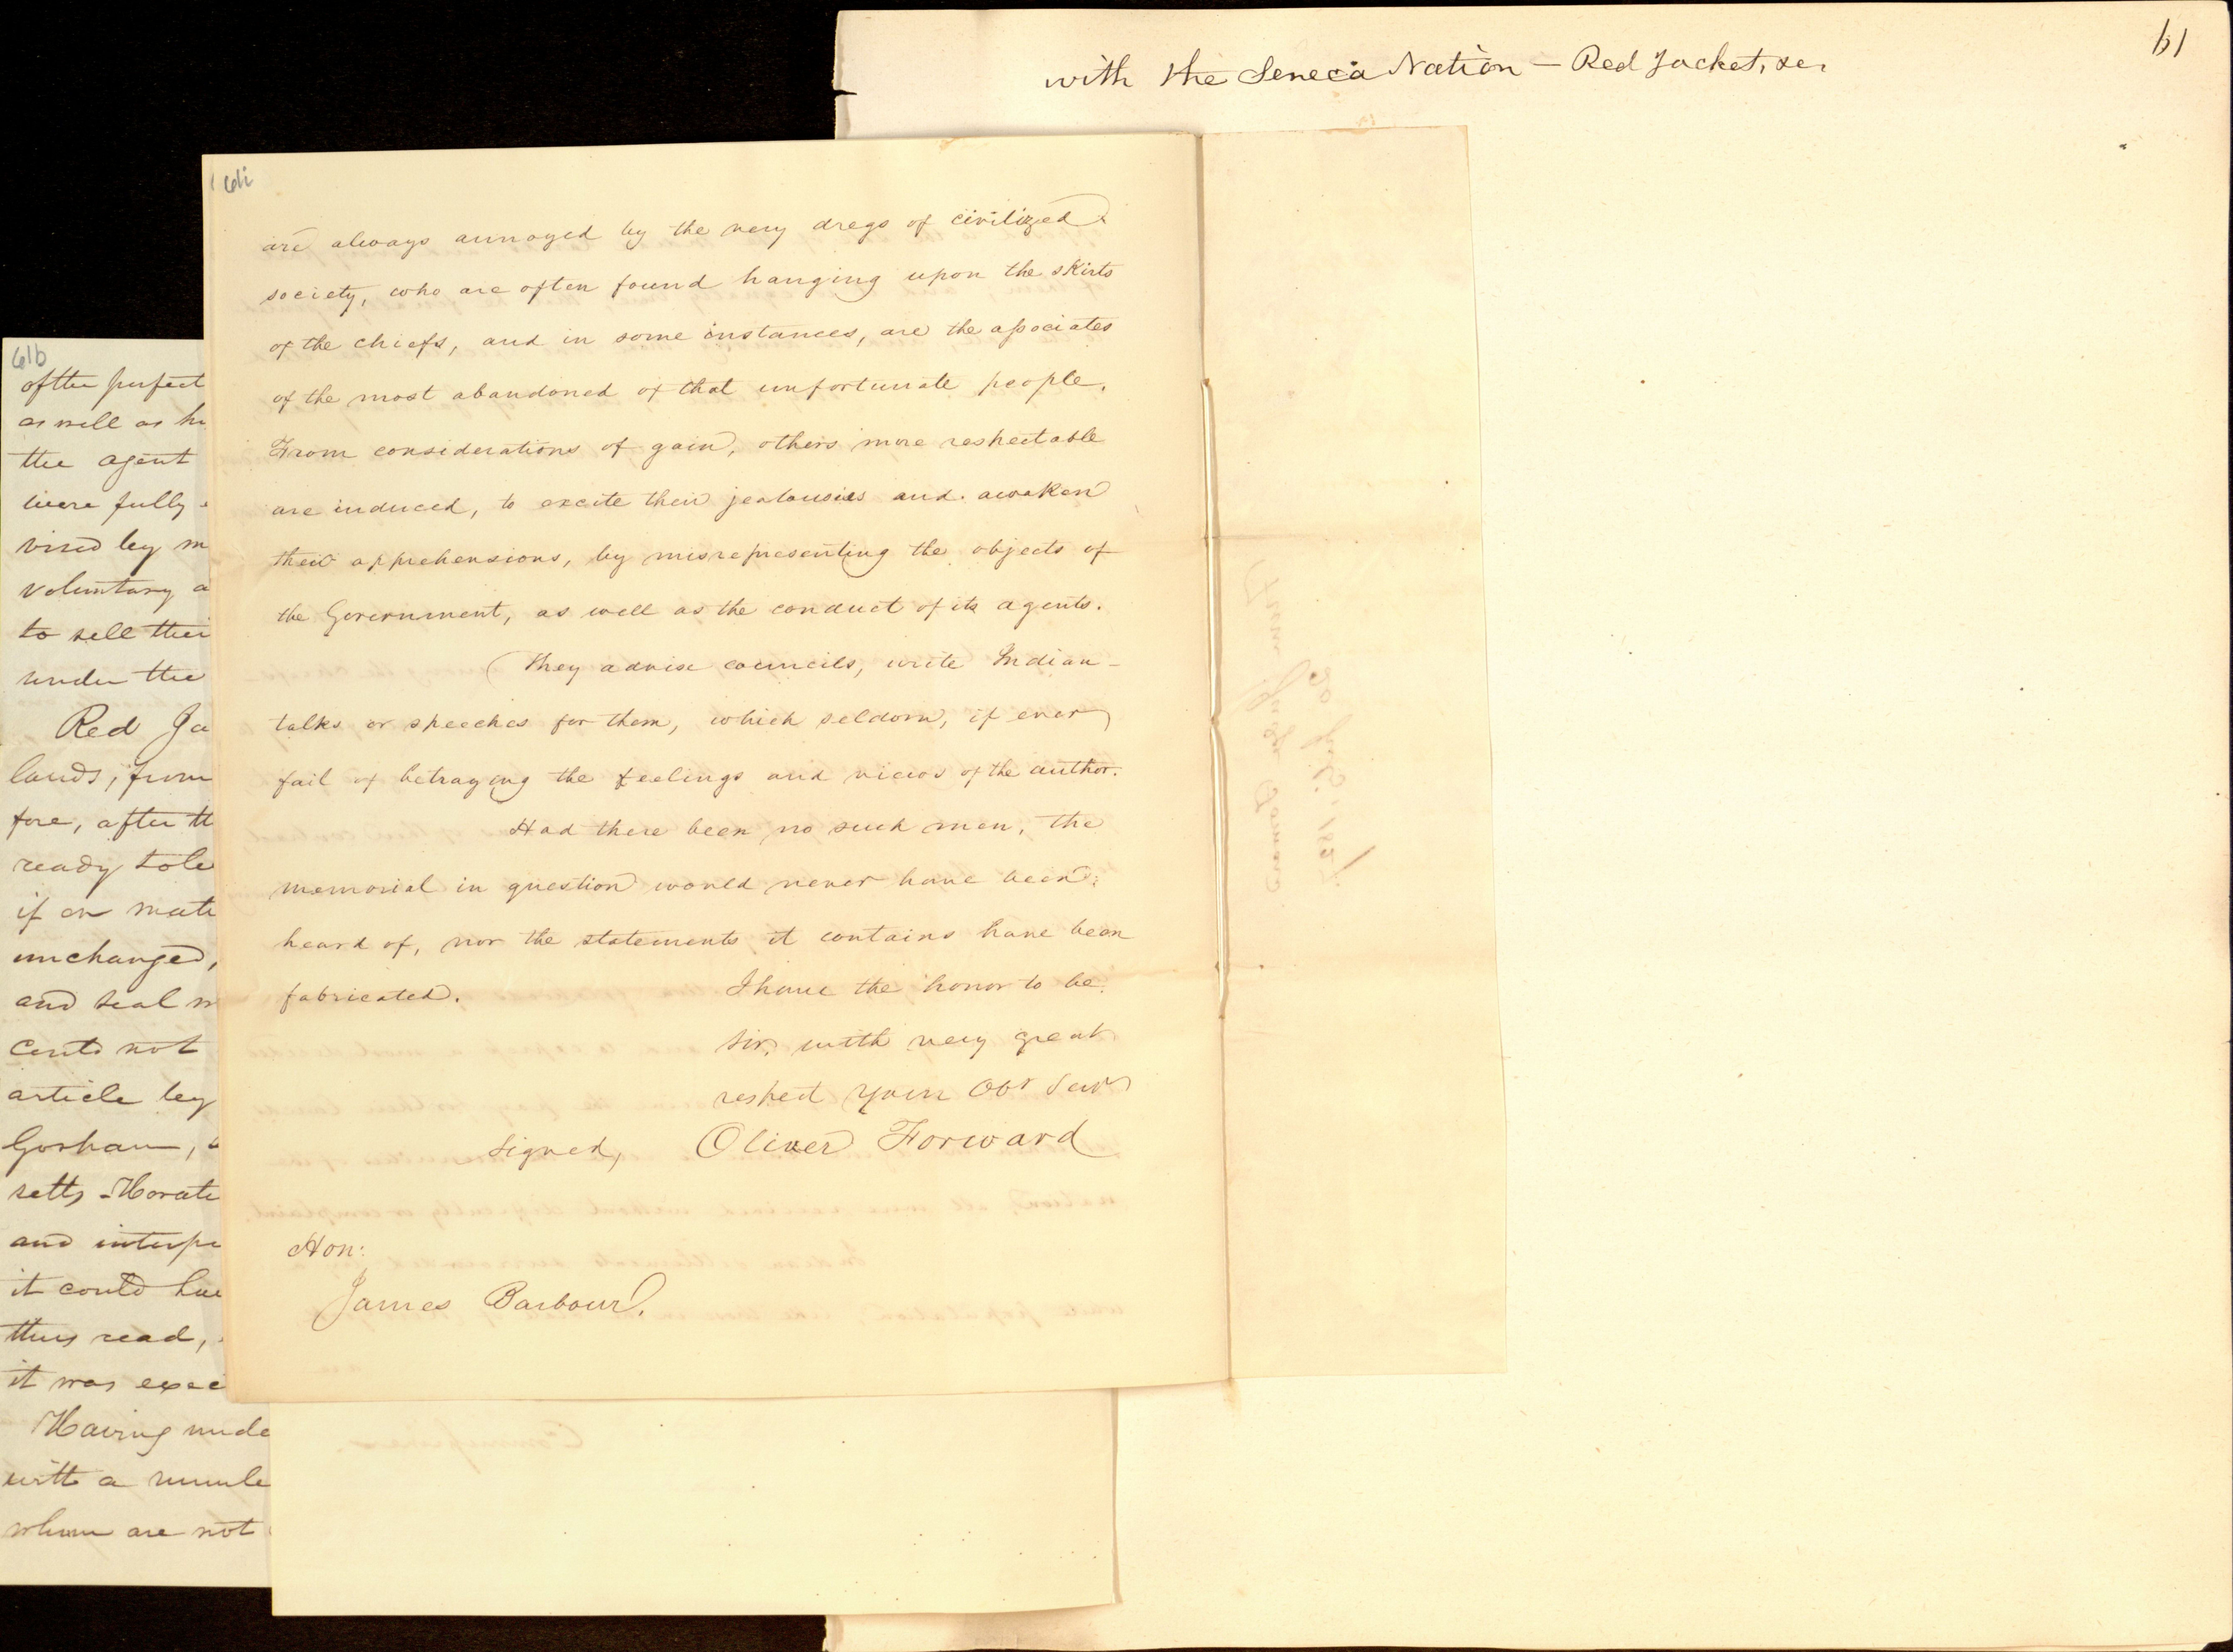 61
with the Seneca Nation — Red Jacket, &c.
61i
are always annoyed by the very dregs of civilized
society, who are often found hanging upon the skirts
of the chiefs, and in some instances, are the associates
of the most abandoned of that unfortunate people.
From considerations of gain, others more respectable
are induced, to excite their jealousies and awaken
their apprehensions, by misrepresenting the objects of
the Government, as well as the conduct of its agents.
They advise councils, write Indian-
talks or speeches for them, which seldom, if ever
fail of betraying the feelings and views of the author.
Had there been no such men, the
memorial in question would never have been
heard of, nor the statements it contains have been
fabricated.
I have the honor to be.
Sir, with very great
respect your Obt Servt
Signed, Oliver Forward
Hon:
James Barbour.
61b
of the perfect
as well as
the agent
were fully
vised by
voluntary a
to sell thei
under the
Red Ja
lands, from
fore, after th
ready to
if on
unchanged,
and seal
cents not
article by
Gorham,
setts - Horati
and interpr
it could
thus read,
it was exec
Having
with a numbe
whom are not